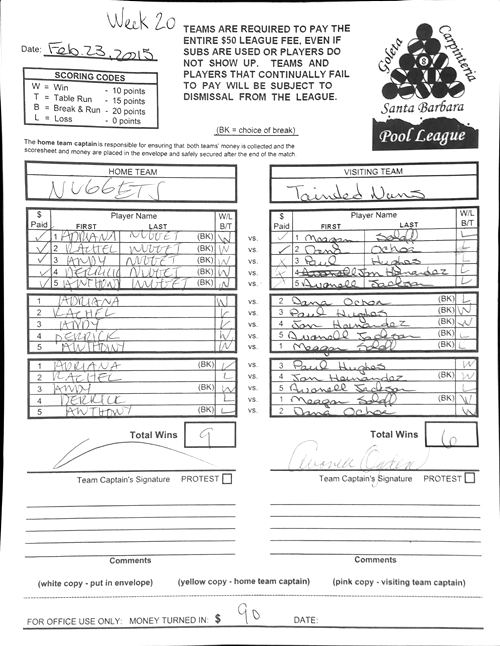 Week 20
Date: Feb. 23, 2015
TEAMS ARE REQUIRED TO PAY THE
ENTIRE $50 LEAGUE FEE, EVEN IF
SUBS ARE USED OR PLAYERS DO
NOT SHOW UP. TEAMS AND
PLAYERS THAT CONTINUALLY FAIL
TO PAY WILL BE SUBJECT TO
DISMISSAL FROM THE LEAGUE.
SCORING CODES
W = Win - 10 points
T = Table Run - 15 points
B = Break & Run - 20 points
L = Loss - 0 points
(BK = choice of break)
Goleta Carpinteria
Santa Barbara
Pool League
The home team captain is responsible for ensuring that both teams' money is collected and the
scoresheet and money are placed in the envelope and safely secured after the end of the match.
HOME TEAM VISITING TEAM
NUGGETS Tainded Nuns
$ Paid Player Name FIRST LAST W/L B/T $ Paid Player Name FIRST LAST W/L B/T
1 ADRIANA NUGGET (BK) W vs. 1 Meagan L
2 RACHEL NUGGET (BK) W vs. 2 Dana Ochoa L
3 ANDY NUGGET (BK) W vs. 3 Paul Hughes L
4 DERRICK NUGGET (BK) W vs. 4 Jon Hernandez L
5 ANTHONY NUGGET (BK) W vs. 5 Avonell Jackson L
1 ADRIANA W vs. 2 Dana Ochoa (BK) L
2 RACHEL vs. 3 Paul Hughes (BK)
3 ANDY vs. 4 Jon Hernandez (BK) W
4 DERRICK W vs. 5 Avonell Jackson (BK) L
5 ANTHONY W vs. 1 Meagan (BK) L
1 ADRIANA (BK) L vs. 3 Paul Hughes W
2 RACHEL L vs. 4 Jon Hernandez (BK) W
3 ANDY (BK) W vs. 5 Avonell Jackson L
4 DERRICK L vs. 1 Meagan (BK) W
5 ANTHONY (BK) L vs. 2 Dana Ochoa W
Total Wins 9 Total Wins 6
Team Captain's Signature PROTEST Team Captain's Signature PROTEST
Comments Comments
(white copy - put in envelope) (yellow copy - home team captain) (pink copy - visiting team captain)
FOR OFFICE USE ONLY: MONEY TURNED IN: $ 90 DATE: